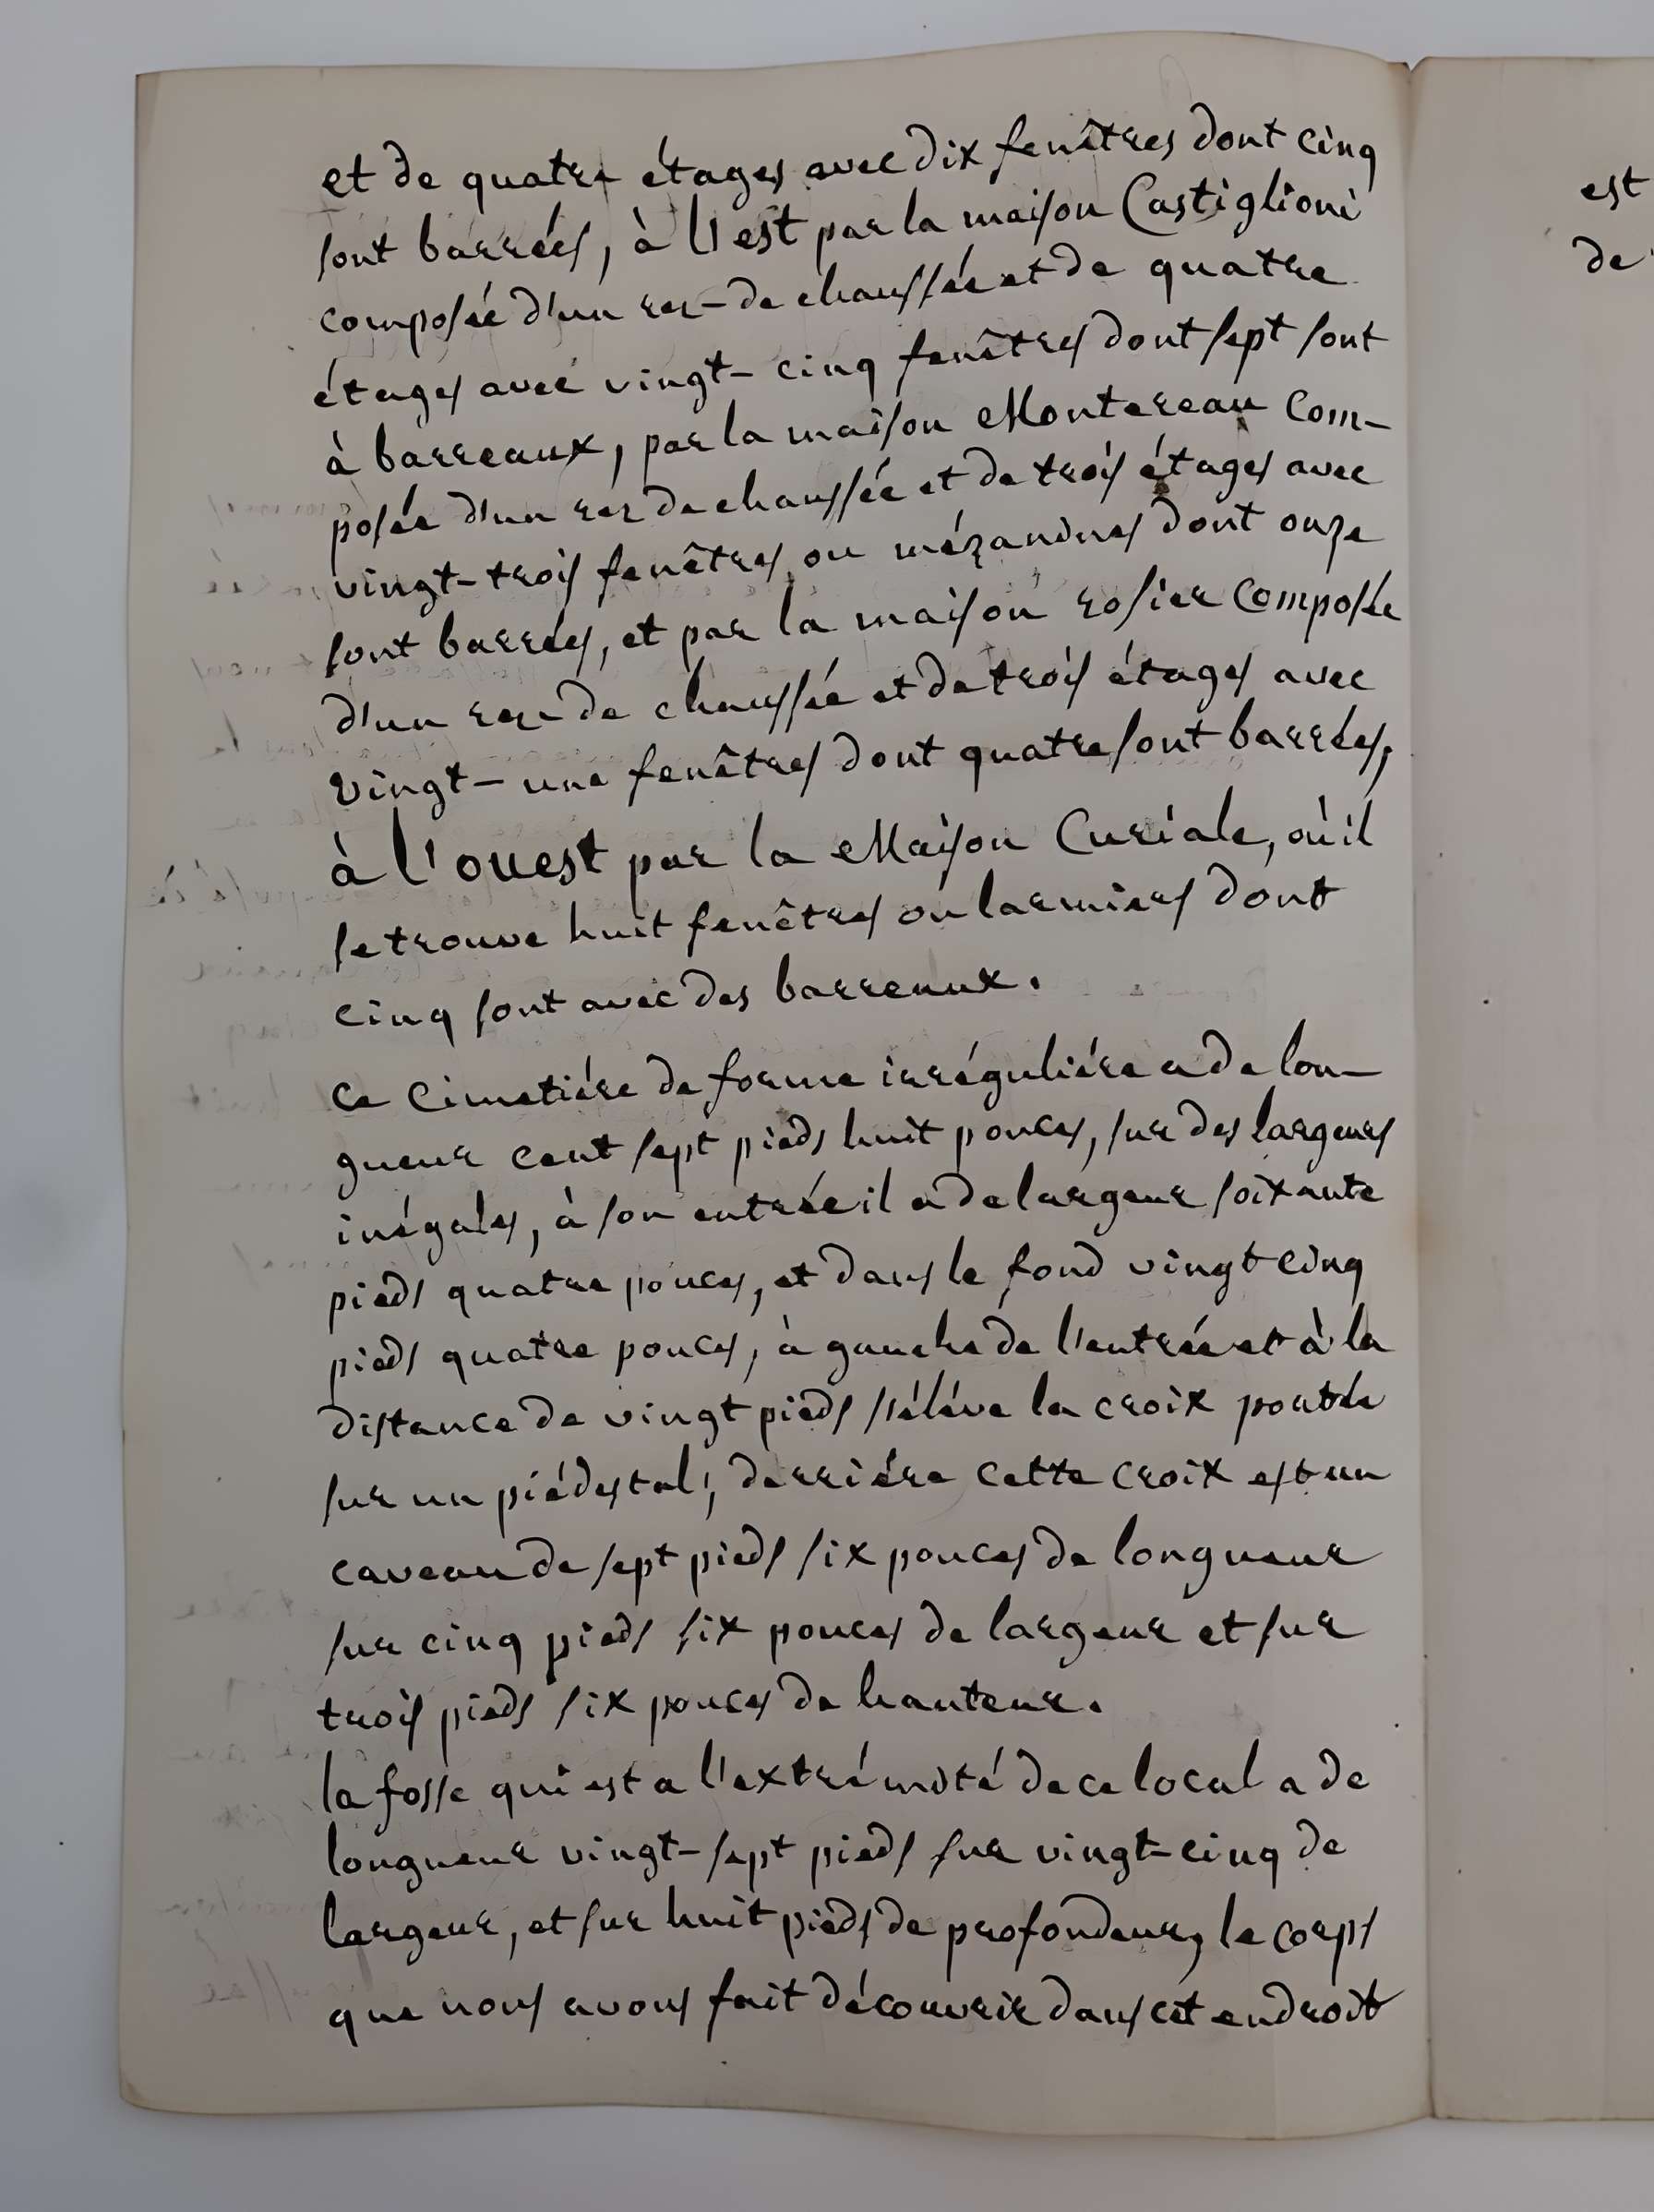 et de quatre étages avec dix fenêtres dont cinq
sont barrées, à l'est par la maison Castiglioni
composée d'un rez-de chaussée et de quatre
étages avec vingt-cinq fenêtres dont sept sont
à barreaux, par la maison Montereau com-
posée d'un rez de chaussée et de trois étages avec
vingt-trois fenêtres ou mézanines dont onze
sont barrées, et par la maison rosier composée
d'un rez-de chaussée et de trois étages avec
vingt-une fenêtres dont quatre sont barrées,
à l'ouest par la Maison Curiale, où il
se trouve huit fenêtres ou larmiers dont
cinq sont avec des barreaux.
ce cimetiére de forme irréguliére a de lon-
gueur cent sept pieds huit pouces, sur des largeurs
inégales, à son entrée il a de largeur soixante
pieds quatre pouces, et dans le fond vingt cinq
pieds quatre pouces, à gauche de l'entrée et à la
distance de vingt pieds s'éléve la croix portée
sur un piédestal, derriére cette croix est un
caveau de sept pieds six pouces de longueur
sur cinq pieds six pouces de largeur et sur
trois pieds six pouces de hauteur.
la fosse qui est a l'extrémité de ce local a de
longueur vingt-sept pieds sur vingt-cinq de
largeur, et sur huit pieds de profondeur, le corps
que nous avons fait découvrir dans cet endroit
est
de